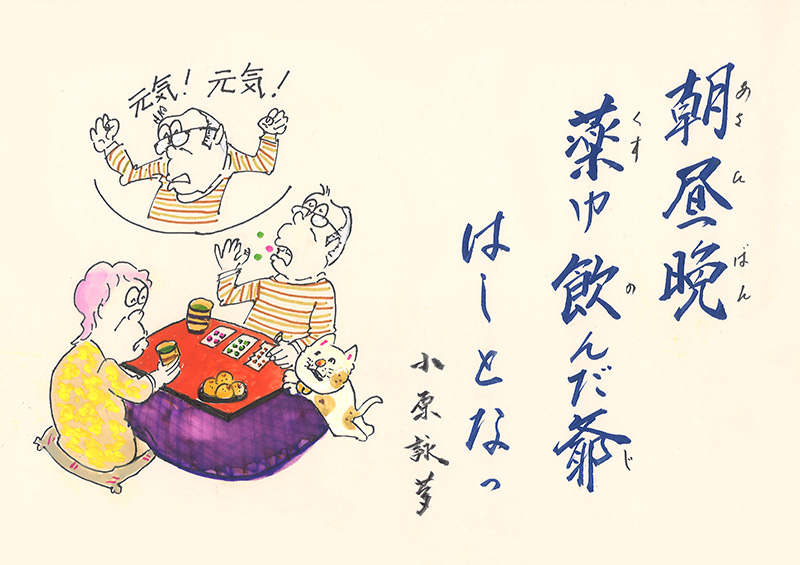 あさ ばん
朝昼晩
くす の じ
薬ゆ飲んだ爺
はしとなっ
小原詠夢
元気！元気！